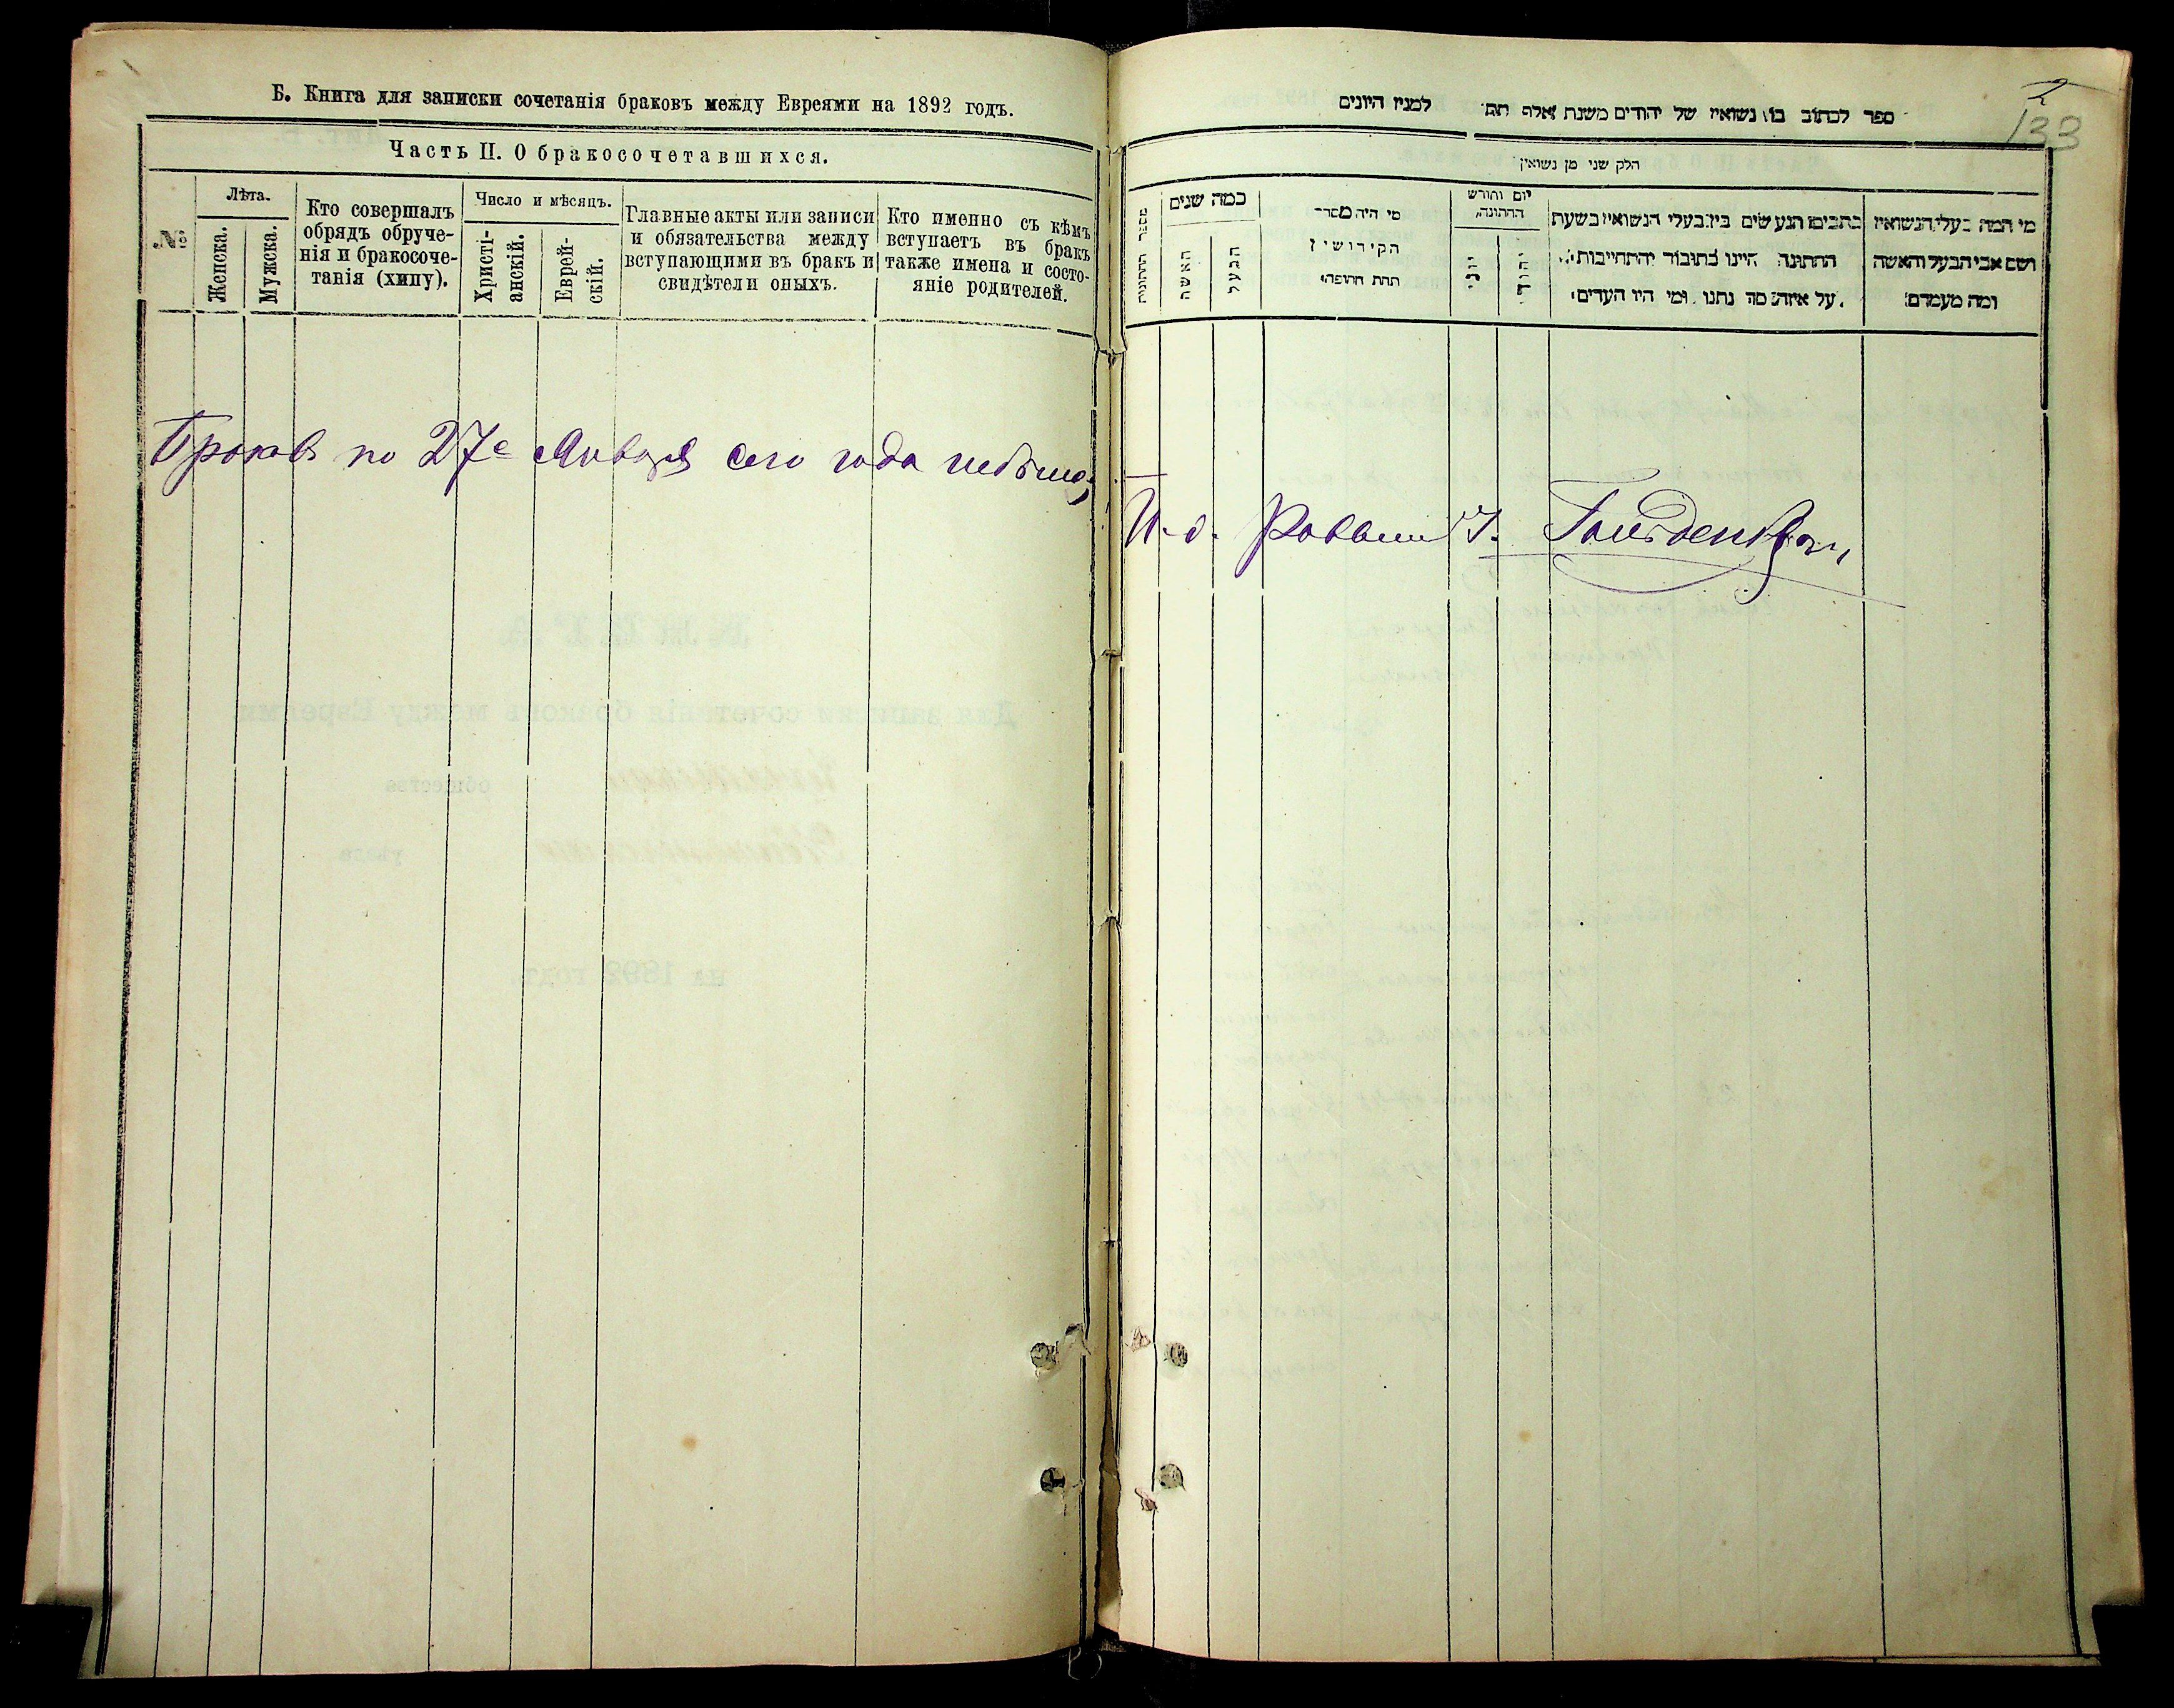 Б. Книга для записки сочетанія браковъ между Евреями на 1892 годъ.
Часть II. О бракосочетавшихся.
№
Лѣта.
Женска.
Мужска.
Кто совершалъ
обрядъ обруче-
нія и бракосоче-
танія (хипу).
Число и мѣсяцъ.
Христі-
анскій.
Еврей-
скій.
Главные акты или записи
и обязательства между
вступающими въ бракъ и
свидѣтели оныхъ.
Кто именно съ кѣмъ
вступаетъ въ бракъ
также имена и состо-
яніе родителей.
Браковъ по 27е Января сего года небыло,
2
133
ספר לכתוב בו נשואין של יהודים משנת אלף תת למנין היונים
חלק שני מן נשואין
מי המה בעלי הנשואין
ושם אבי הבעל והאשה
ומה מעמדם
כתבים הנעשים בין בעלי הנשואין בשעת
החתונה היינו כתובות והתחייבות
על איזה סך נתנו ומי היו העדים
יום וחודש
החתונה
יהודי
יוני
מי היה מסדר
הקידושין
תחת החופה
כמה שנים
הבעל
האשה
מספר החתונות
И. д. Раввина